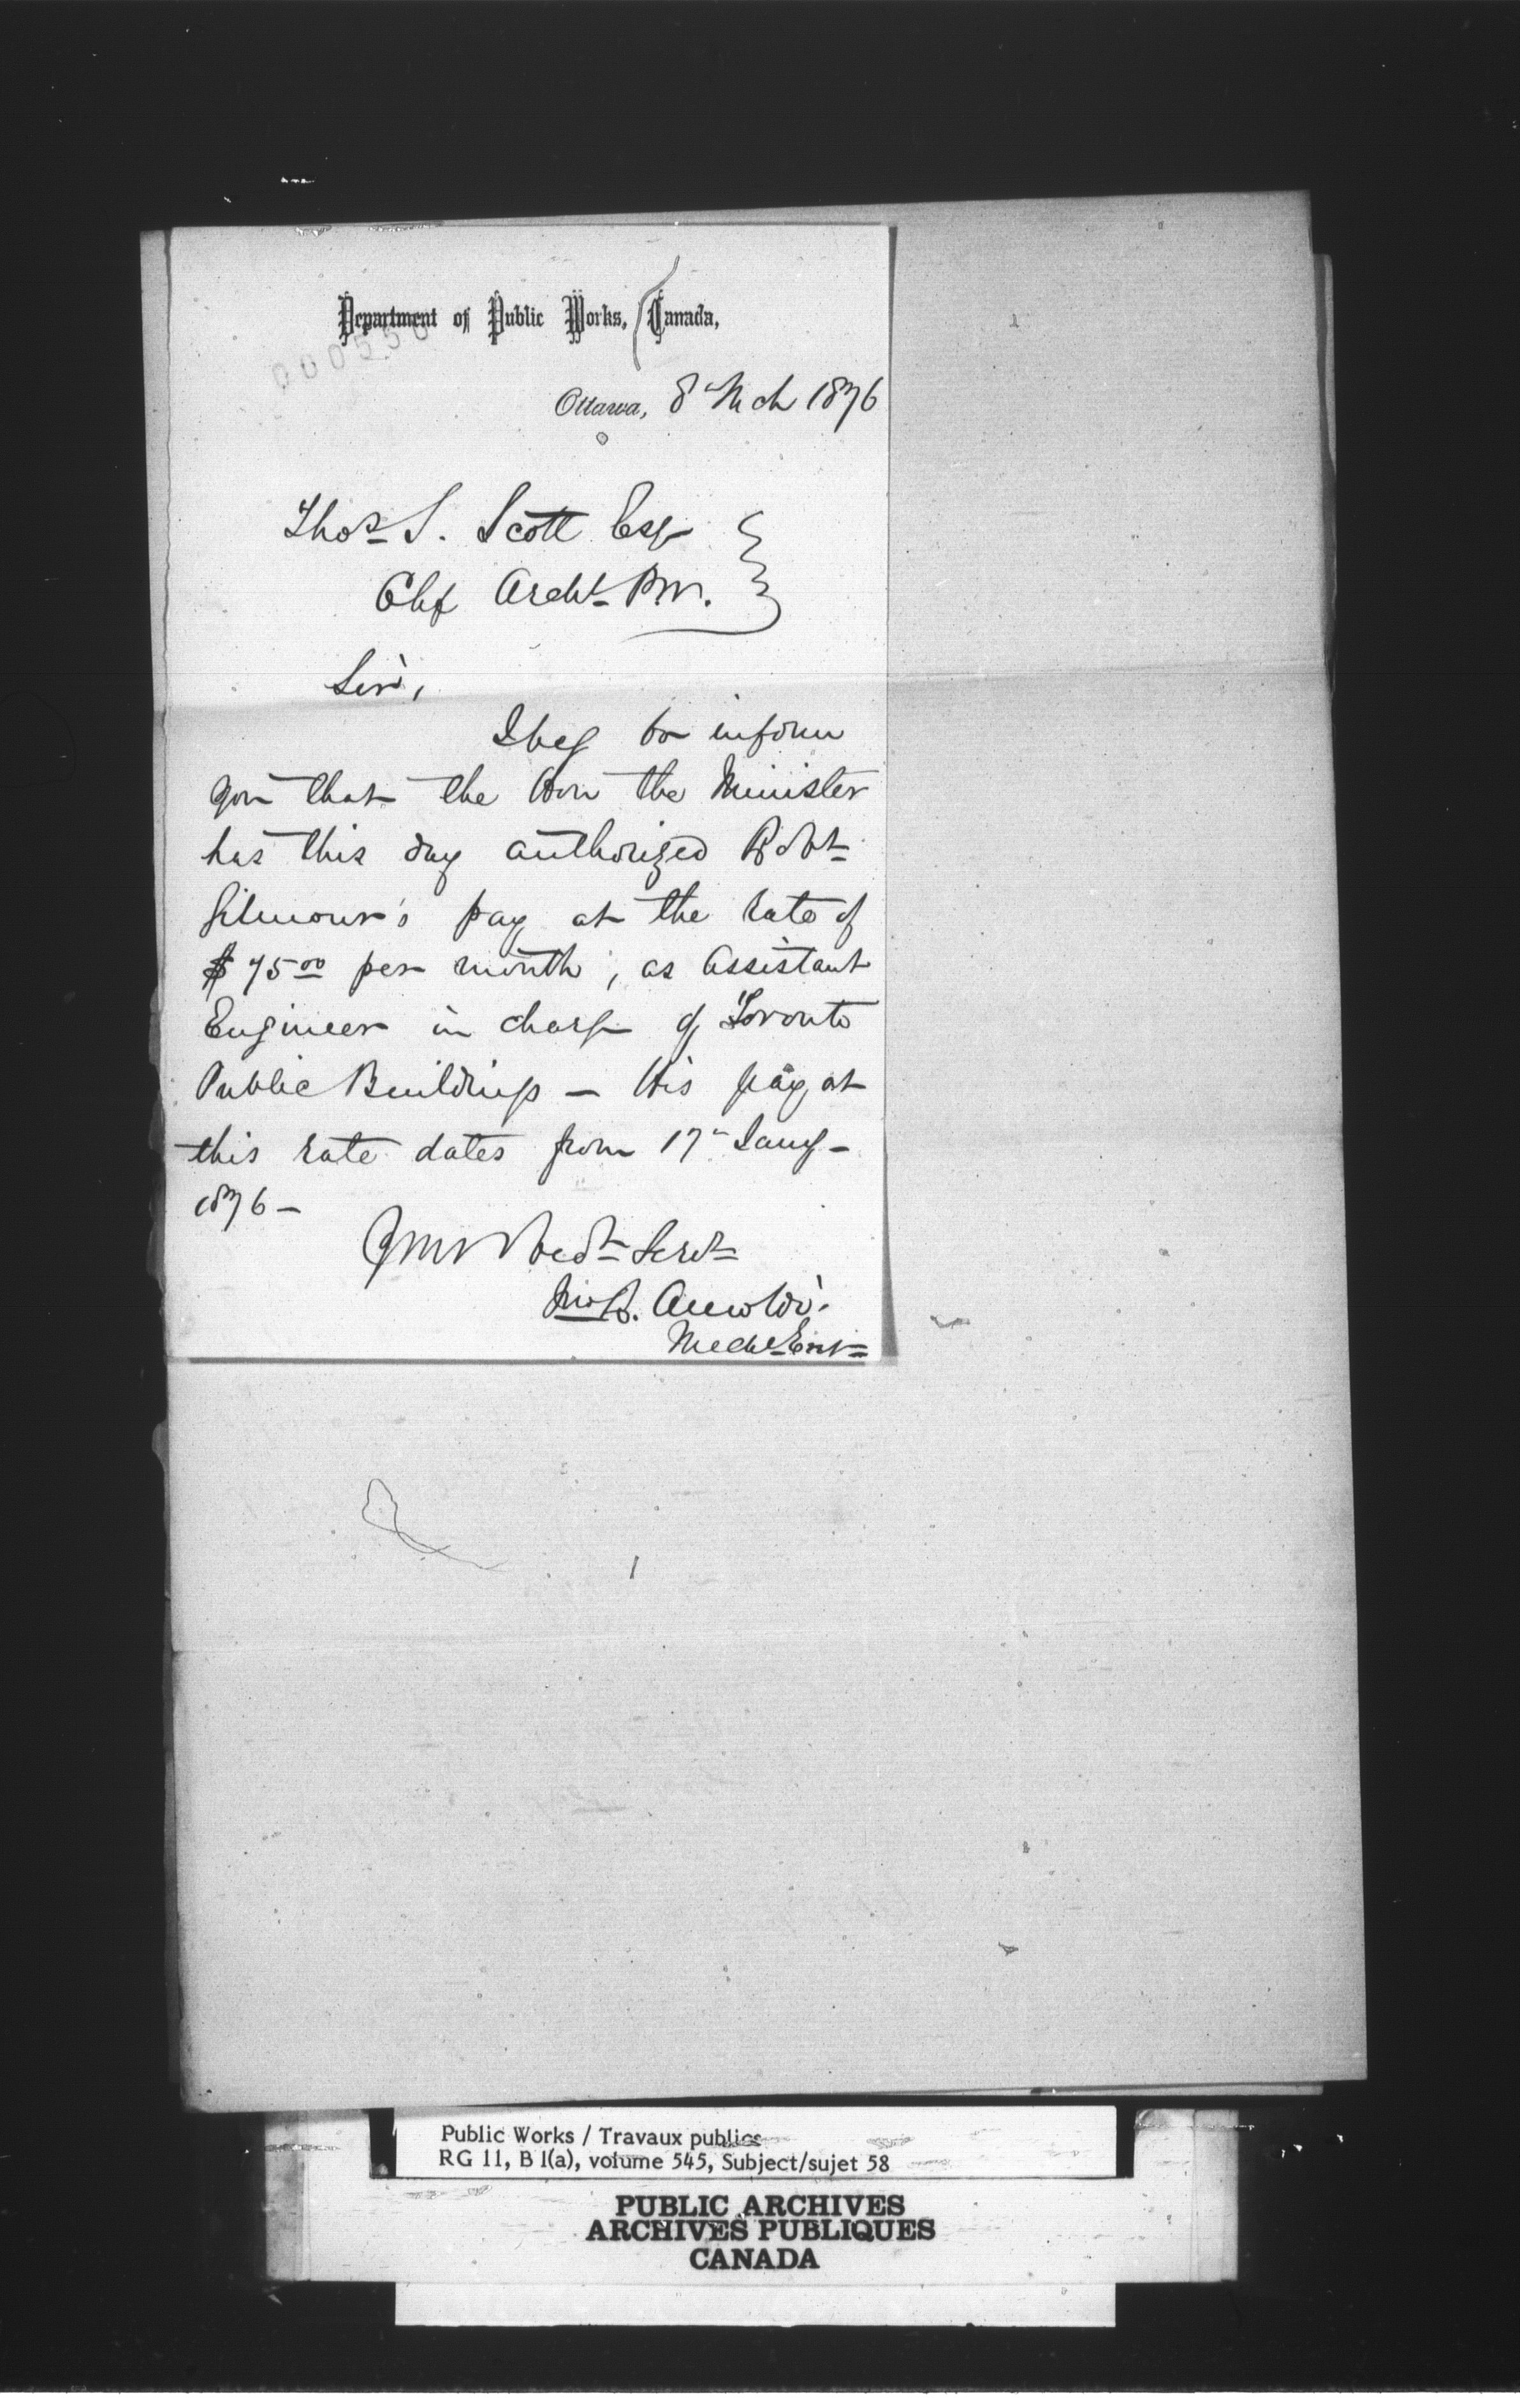 Department of Public Works, Canada,
000550
Ottawa, 8th Mch 1876
Thos S. Scott Esq
Chf Archt P.W.
Sir,
I beg to inform
you that the Hon the Minister
has this day authorized Robt
Gilmour's pay at the rate of
$75.00 per month, as Assistant
Engineer in charge of Toronto
Public Buildings — His pay at
this rate dates from 17th Jany —
1876 —
Your Obedt Servt
Jno R. Arnoldi.
Mechl Engr
Public Works / Travaux publics
RG 11, B 1(a), volume 545, Subject/sujet 58
PUBLIC ARCHIVES
ARCHIVES PUBLIQUES
CANADA